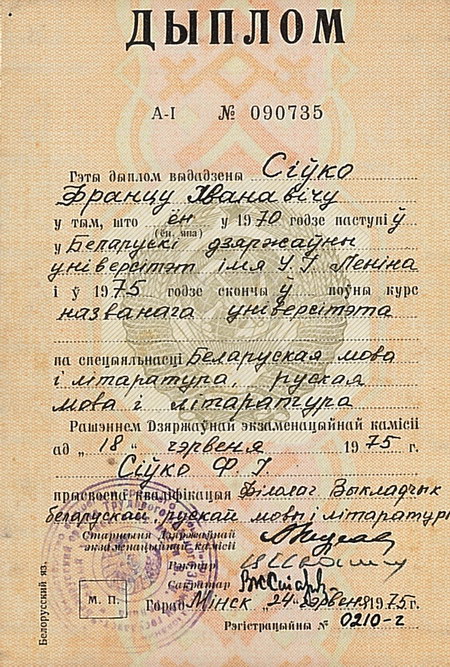 ДЫПЛОМ
А-I № 090735
Гэты дыплом выдадзены Сіўко
Францу Іванавічу
у тым, што ён у 1970 годзе паступіў
(ён, яна)
у Беларускі дзяржаўны
універсітэт імя У.І. Леніна
і ў 1975 годзе скончыў поўны курс
названага універсітэта
па спецыяльнасці Беларуская мова
і літаратура, руская
мова і літаратура
Рашэннем Дзяржаўнай экзаменацыйнай камісіі
ад „18" чэрвеня 1975 г.
Сіўко Ф. І.
прысвоена кваліфікацыя Філолаг. Выкладчык
беларускай, рускай мовы і літаратуры
Старшыня Дзяржаўнай
экзаменацыйнай камісіі
Рэктар
Сакратар
М. П.
Горад Мінск „24" чэрвеня 1975 г.
Рэгістрацыйны № 0210-г
Белорусский яз.